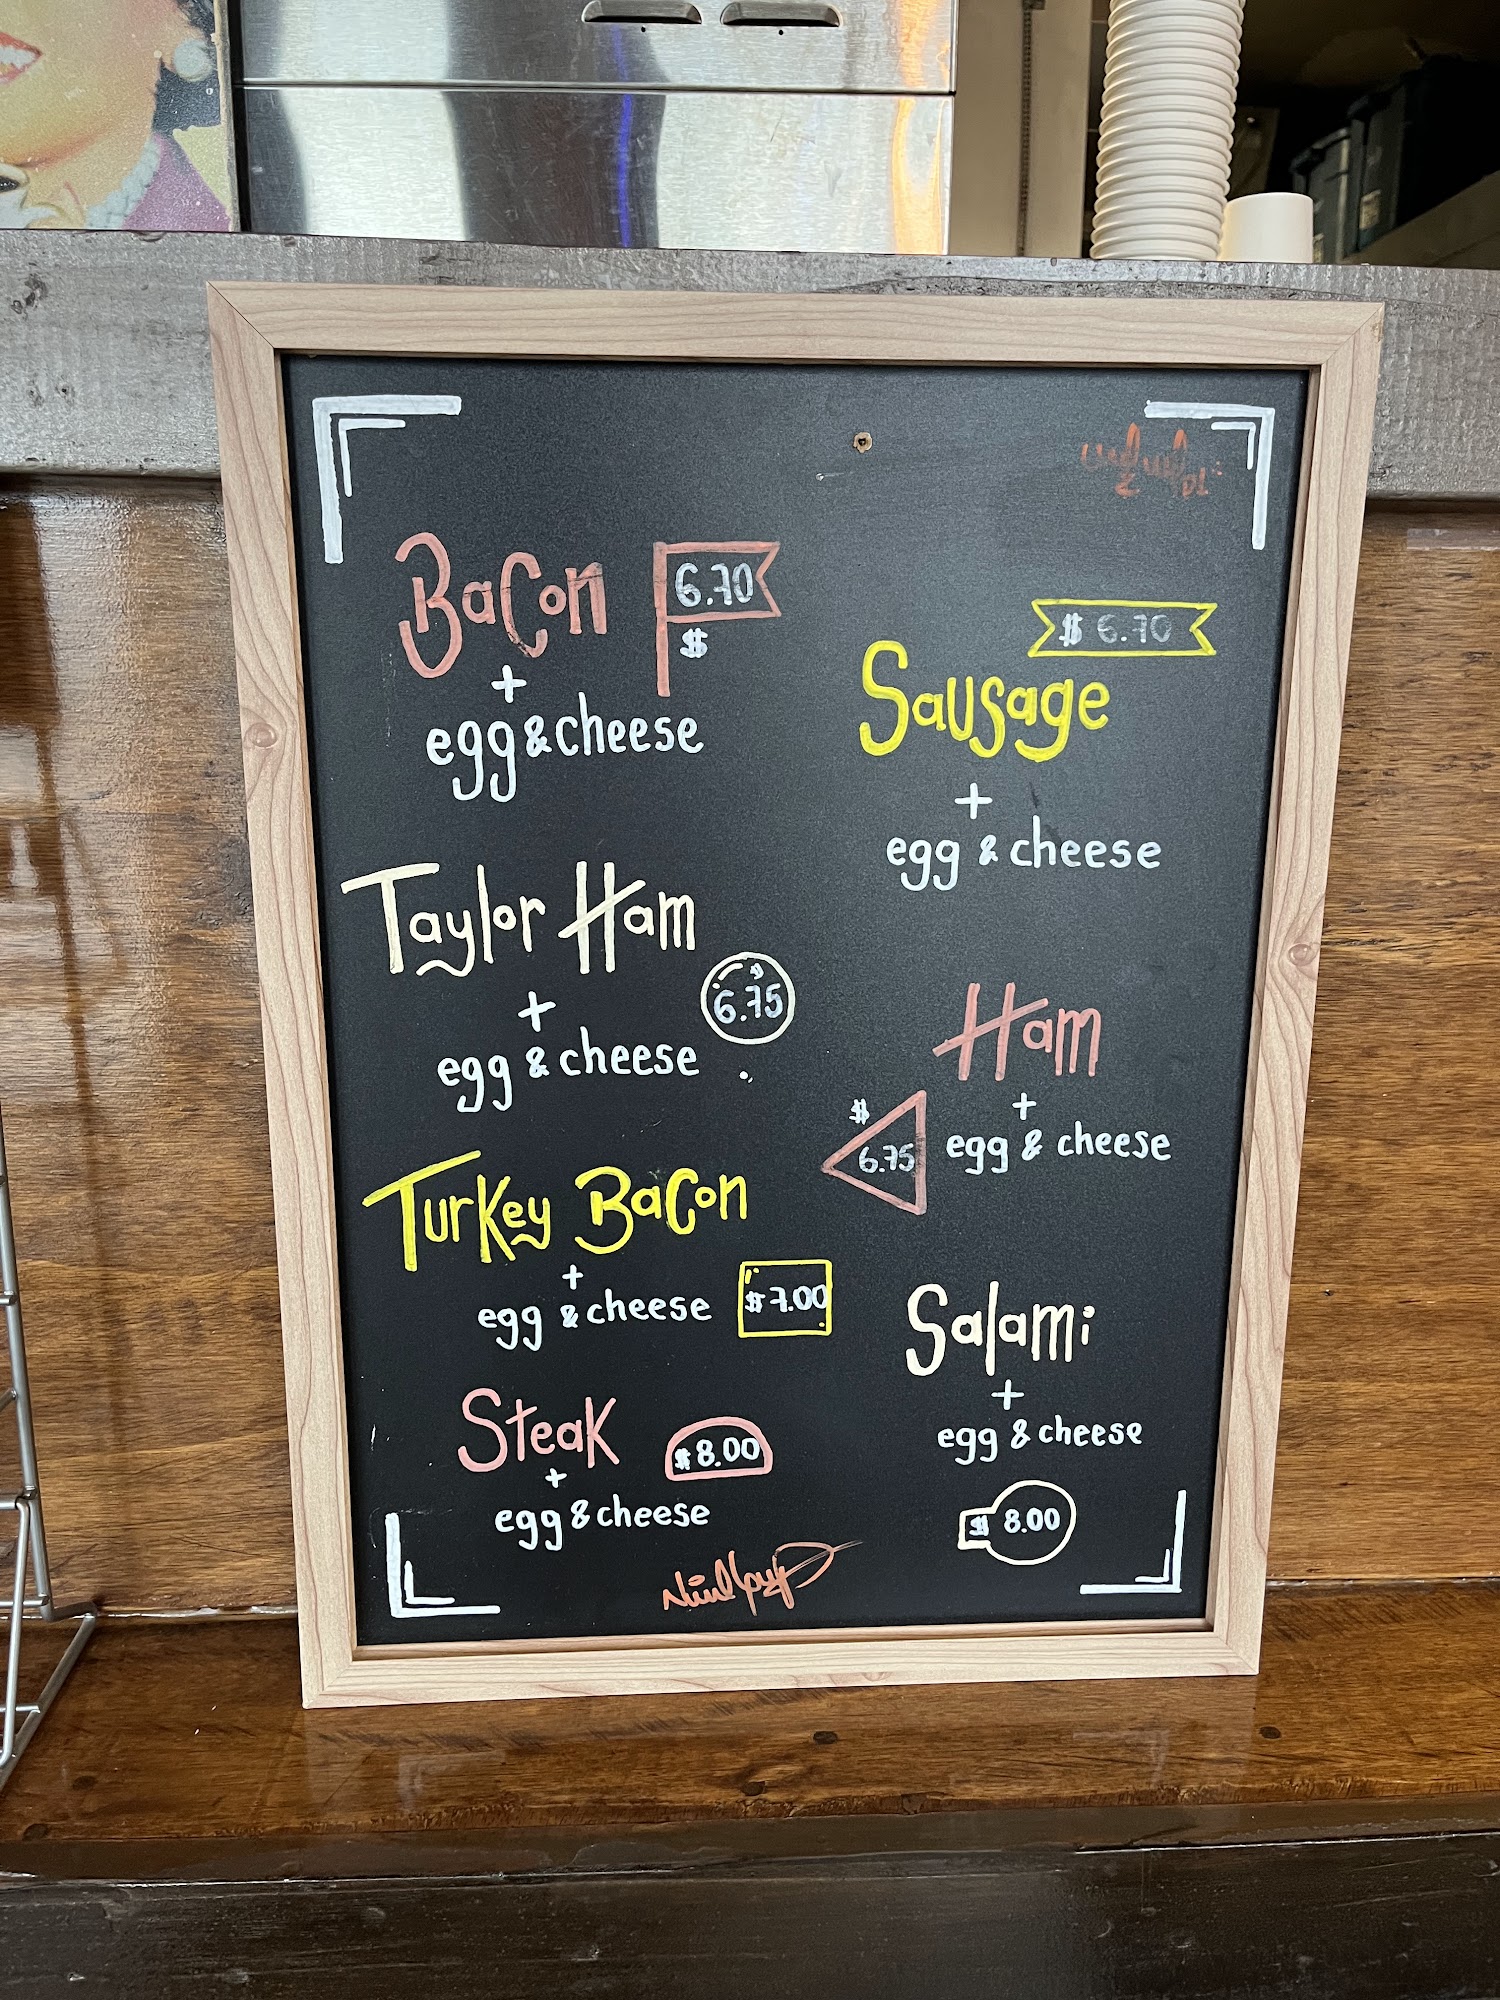 Bacon
6.70
$
+
egg & cheese
$ 6.70
Sausage
+
egg & cheese
Taylor Ham
$
6.75
+
egg & cheese
Ham
+
egg & cheese
$
6.75
Turkey Bacon
+
egg & cheese
$ 7.00
Salami
+
egg & cheese
$ 8.00
Steak
$ 8.00
+
egg & cheese